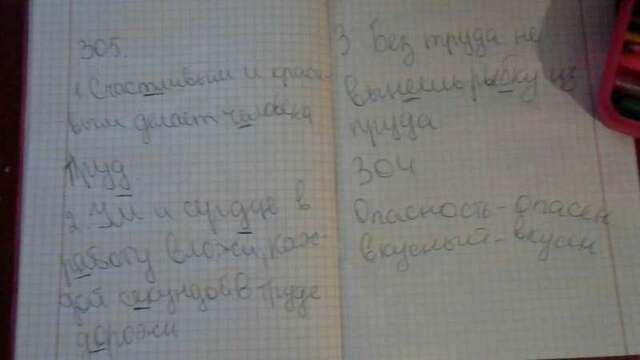 305.
1. Счастливым и краси-
вым делает человека
труд
2. Ум и сердце в
работу вложи, каж-
дой секундой в труде
дорожи
3 Без труда не
вынешь рыбку из
пруда
304
Опасность - опасен
вкусный - вкусен